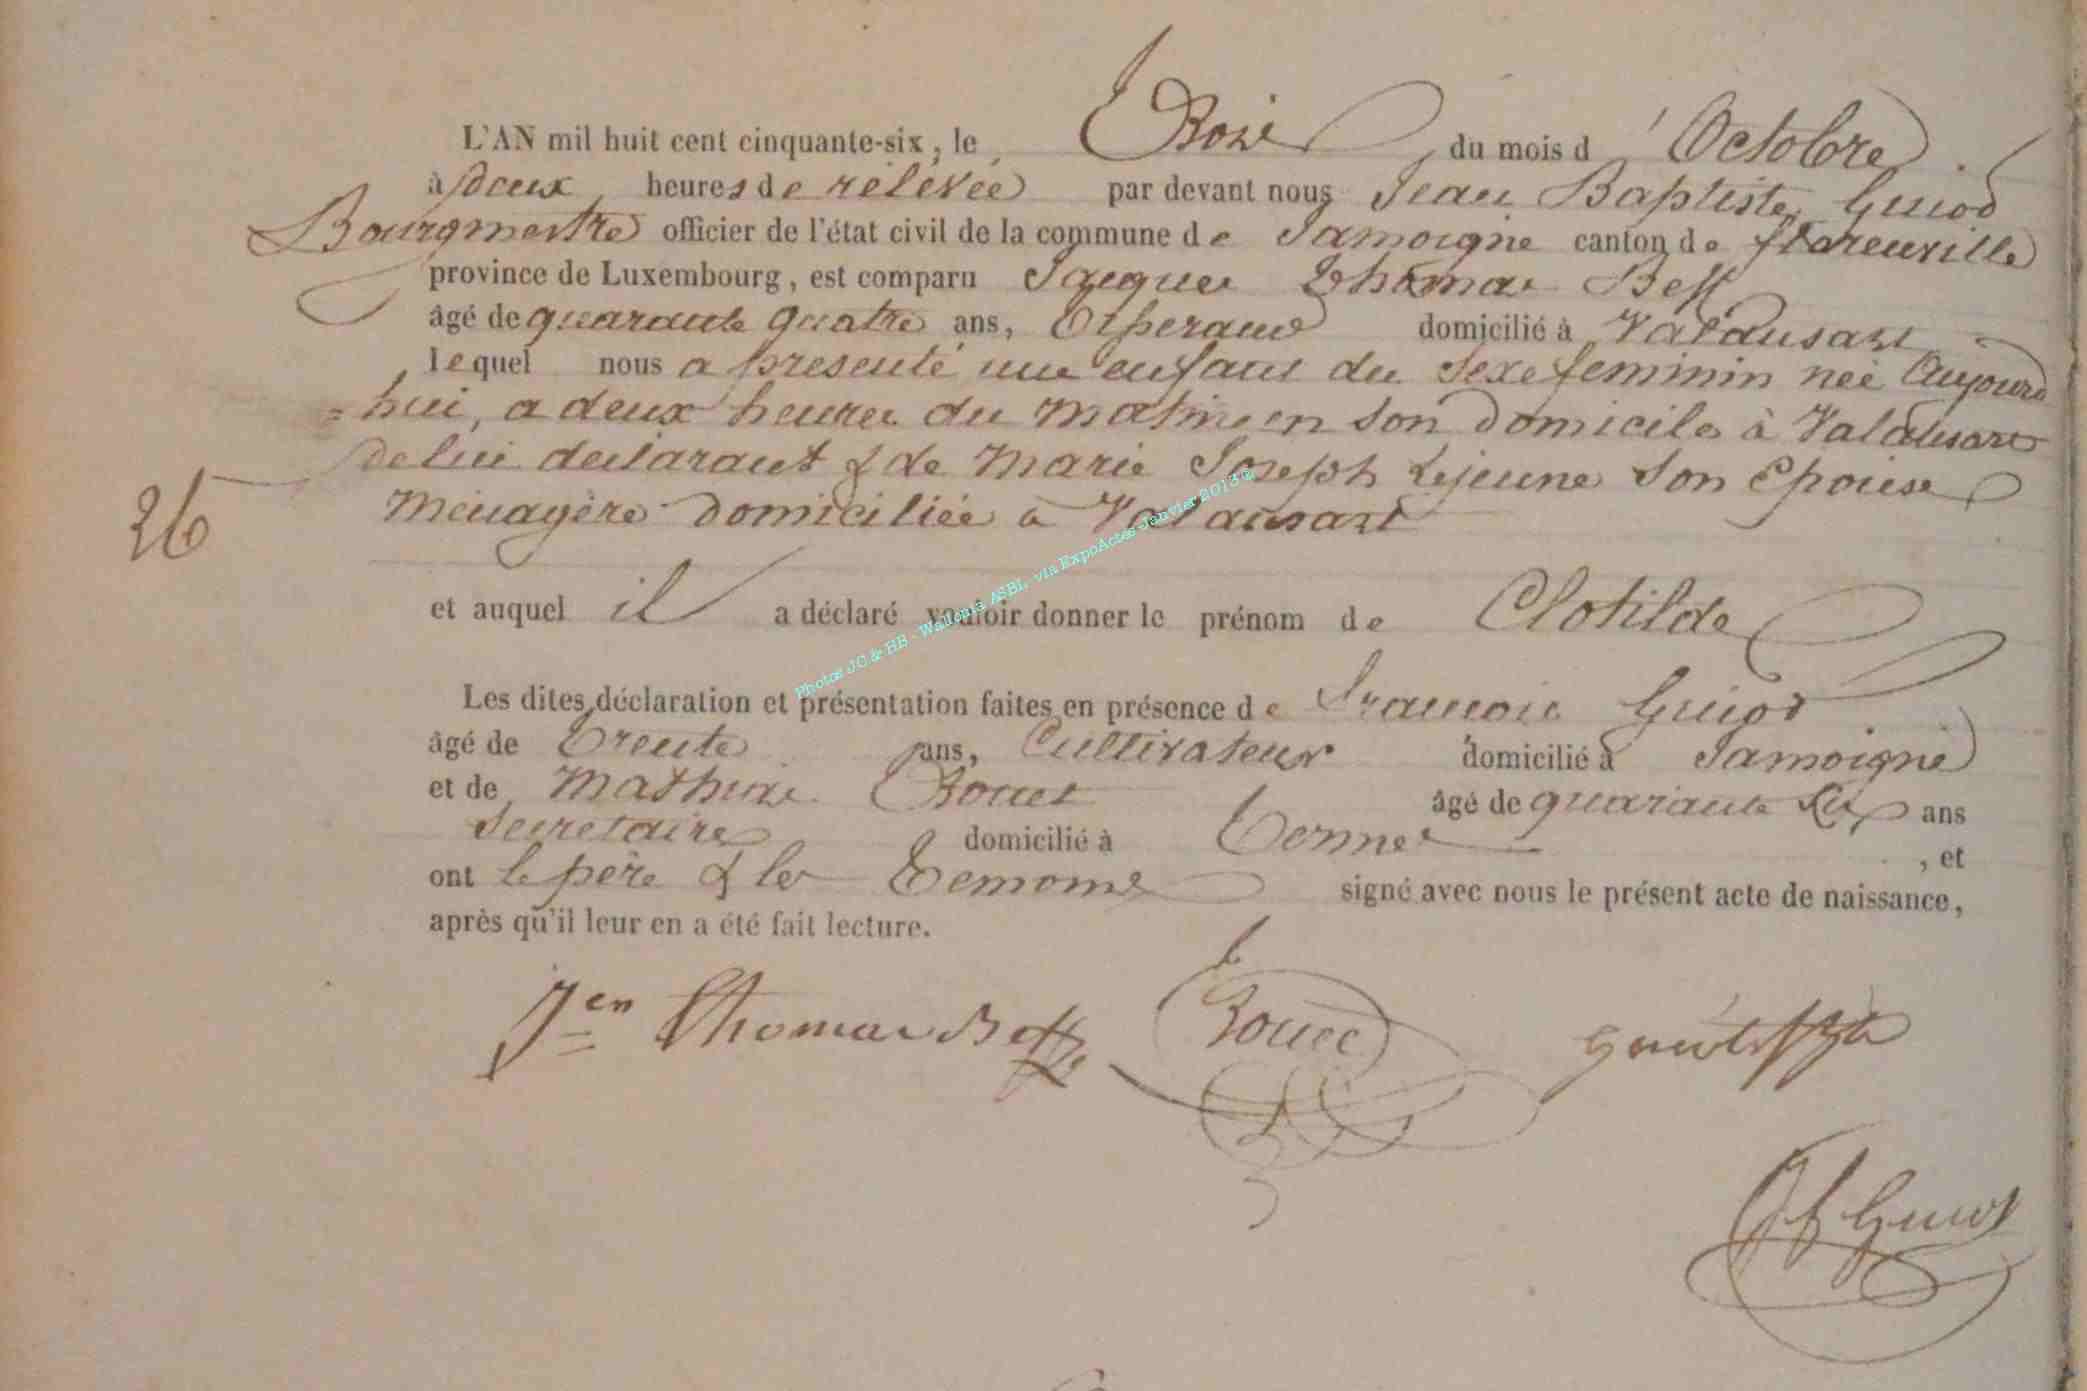 L'AN mil huit cent cinquante-six, le Trois du mois d'Octobre
à deux heures de relevée par devant nous Jean Baptiste Guiot
Bourgmestre officier de l'état civil de la commune de Jamoigne canton de florenville
province de Luxembourg, est comparu Jacques Thomas
âgé de quarante quatre ans, domicilié à Valansart
lequel nous a présenté une enfant du Sexe feminin neé Aujourd
=hui, a deux heures du matin en son Domicile à Valansart
de lui déclarant & de Marie Joseph Lejeune Son Epouse
Ménagère domiciliée à Valansart
26
et auquel il a déclaré vouloir donner le prénom de Clotilde
Les dites déclaration et présentation faites en présence de Francois Guiot
âgé de Trente ans, Cultivateur domicilié à Jamoigne
et de Rouet âgé de quarante Six ans
Secretaire domicilié à Termes , et
ont le père & les Temoins signé avec nous le présent acte de naissance,
après qu'il leur en a été fait lecture.
Thomas
JB Guiot
Photos JC & HB - Wallonia ASBL via ExpoActes Janvier 2013 ©